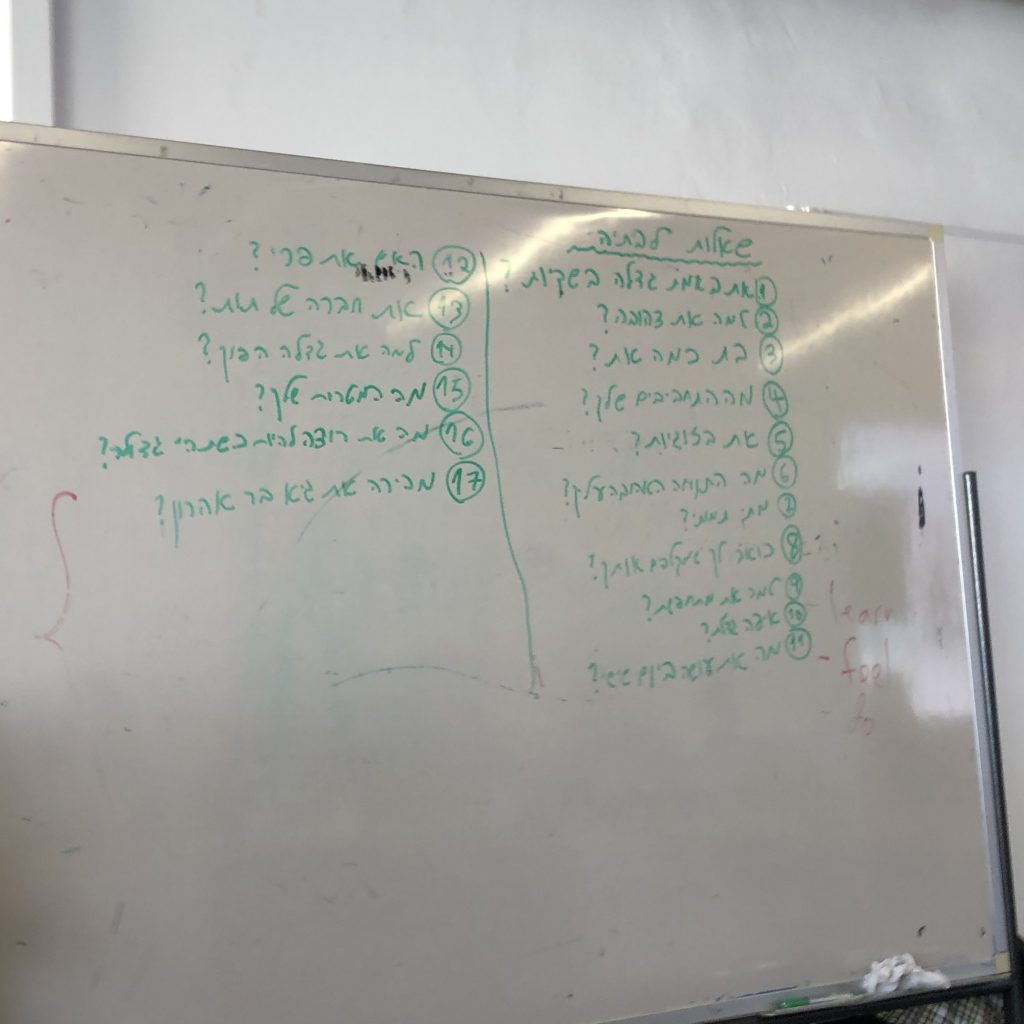 שאלות לבתיה
① את באמת גדלה בשקות?
② למה את צהובה?
③ בת כמה את?
④ מה התחביבים שלך?
⑤ את בזוגיות?
⑥ מה התנוחה האהובה עליך?
⑦ מתי תמותי?
⑧ כואב לך שמקלפים אותך?
⑨ למה את מתחפשת?
⑩ איפה שלולי?
⑪ מה את עושה ביום שישי?
⑫ האם את פרי?
⑬ את חברה של תות?
⑭ למה את גדלה הפוך?
⑮ מה המטרות שלך?
⑯ מה את רוצה להיות כשתהיי גדולה?
⑰ מכירה את גיא בר אהרון?
- learn
- feel